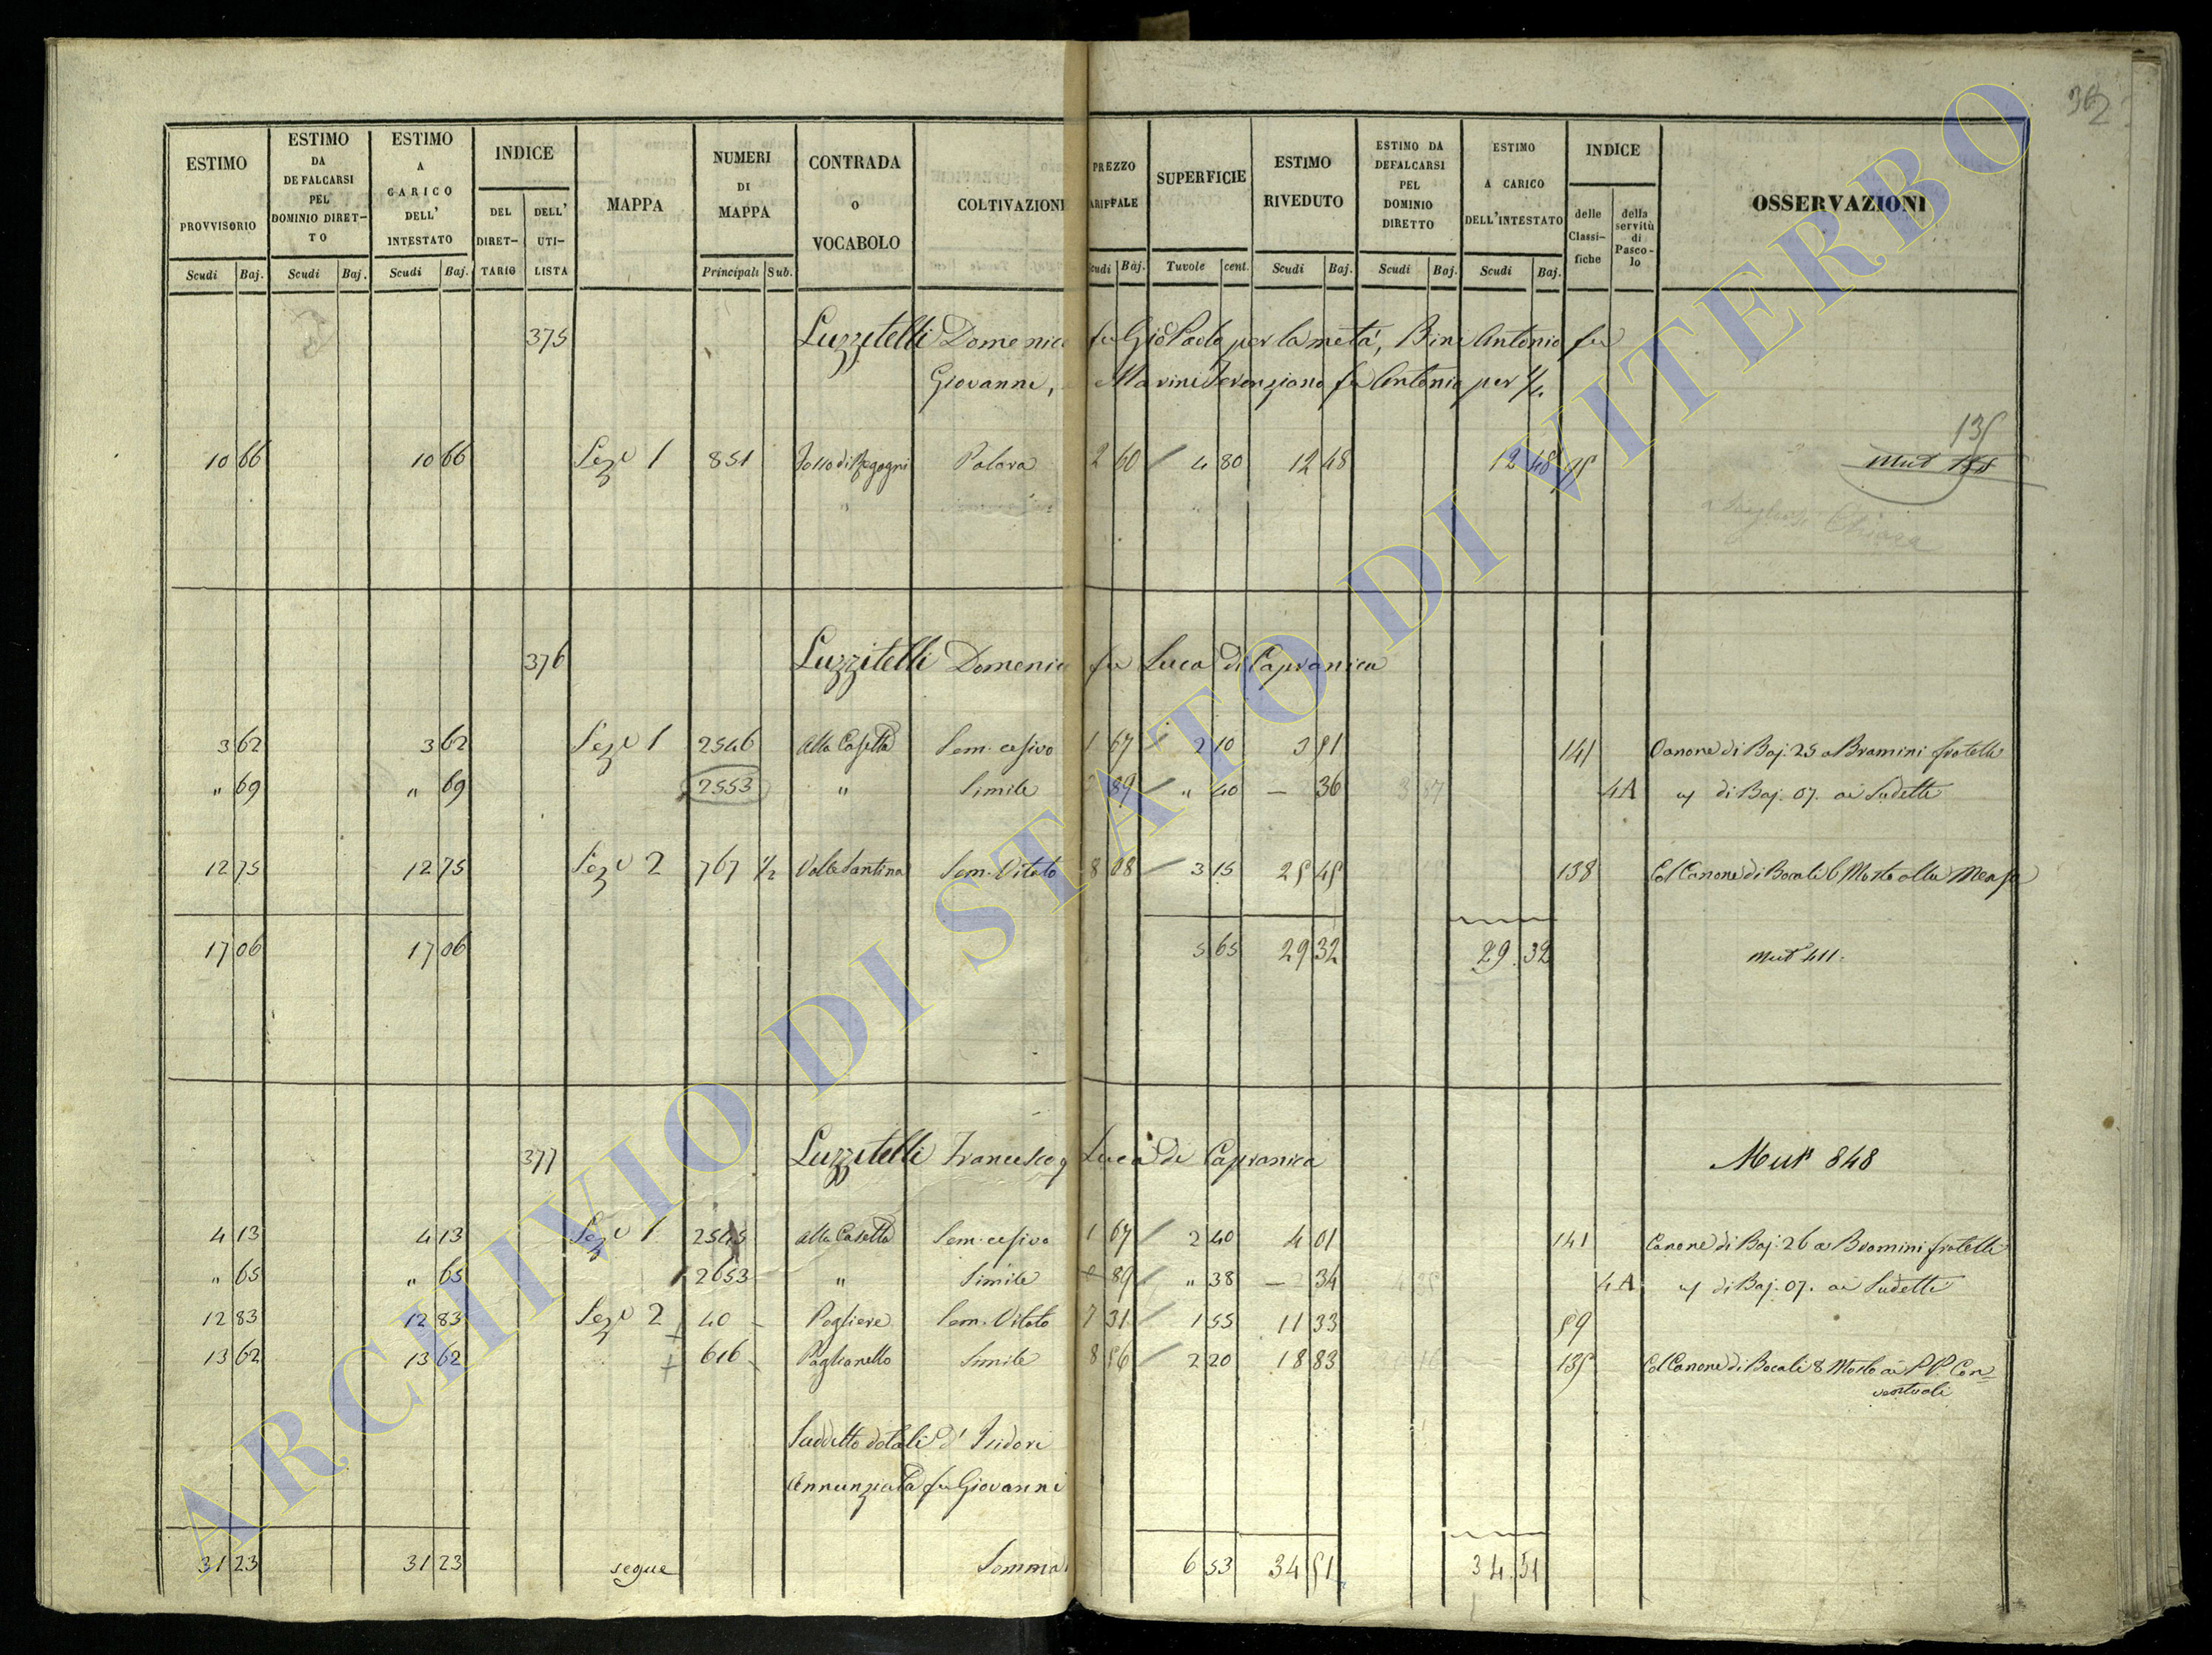 362
ESTIMO PROVVISORIO Scudi Baj.
ESTIMO DA DEFALCARSI PEL DOMINIO DIRET-TO Scudi Baj.
ESTIMO A CARICO DELL' INTESTATO Scudi Baj.
INDICE DEL DIRET-TARIO DELL' UTI-LISTA
MAPPA
NUMERI DI MAPPA Principali Sub.
CONTRADA O VOCABOLO
COLTIVAZIONI
PREZZO ARIFFALE cudi Baj.
SUPERFICIE Tavole cent.
ESTIMO RIVEDUTO Scudi Baj.
ESTIMO DA DEFALCARSI PEL DOMINIO DIRETTO Scudi Baj.
ESTIMO A CARICO DELL'INTESTATO Scudi Baj.
INDICE delle Classi-fiche della servitù di Pasco-lo
OSSERVAZIONI
375 Luzzitelli Domenico fu Gio Paolo per la metà, Bini Antonio fu
Giovanni, Marini Terenziano fu Antonio per 1/4.
135
10 66 10 66 Sez.e 1 851 Fosso di Local Palara 2 60 / 4 80 12 48 12 48 95 Mut
Chiara
376 Luzzitelli Domenico fu Luca di Capranica
3 62 3 62 Sez.e 1 2546 Alla Casetta Sem. cesivo 1 67 2 10 3 51 141 Canone di Baj. 25 a Bramini fratelli
" 69 " 69 2553 " Simile 89 / " 40 — 36 4A di Baj. 07. ai Sudetti
12 75 12 75 Sez.e 2 767 1/2 Valle Santina Sem. Vitato 8 08 / 3 15 25 45 138 Col Canone di Bocali 6 Mosto alla Mensa
17 06 17 06 5 65 29 32 29. 32 Mut 411.
377 Luzzitelli Francesco q Luca di Capranica Mut 848
4 13 4 13 Sez.e 1 2545 alla Casetta Sem. cesivo 1 67 / 2 40 4 01 141 Canone di Baj. 26 a Bramini fratelli
" 65 " 65 2653 " Simile 89 / " 38 — 34 4A di Baj. 07. ai Sudetti
12 83 12 83 Sez.e 2 40 Pogliere Sem. Vitato 7 31 / 1 55 11 33 59
13 62 13 62 616 Paglianello Simile 8 56 / 2 20 18 83 135 Col Canone di Bocali 8 Mosto ai P.P. Con=
ventuali
Suddetto dotali d' Isidori
Annunziata fu Giovanni
31 23 31 23 segue Somma 6 53 34 51 34. 51
ARCHIVIO DI STATO DI VITERBO